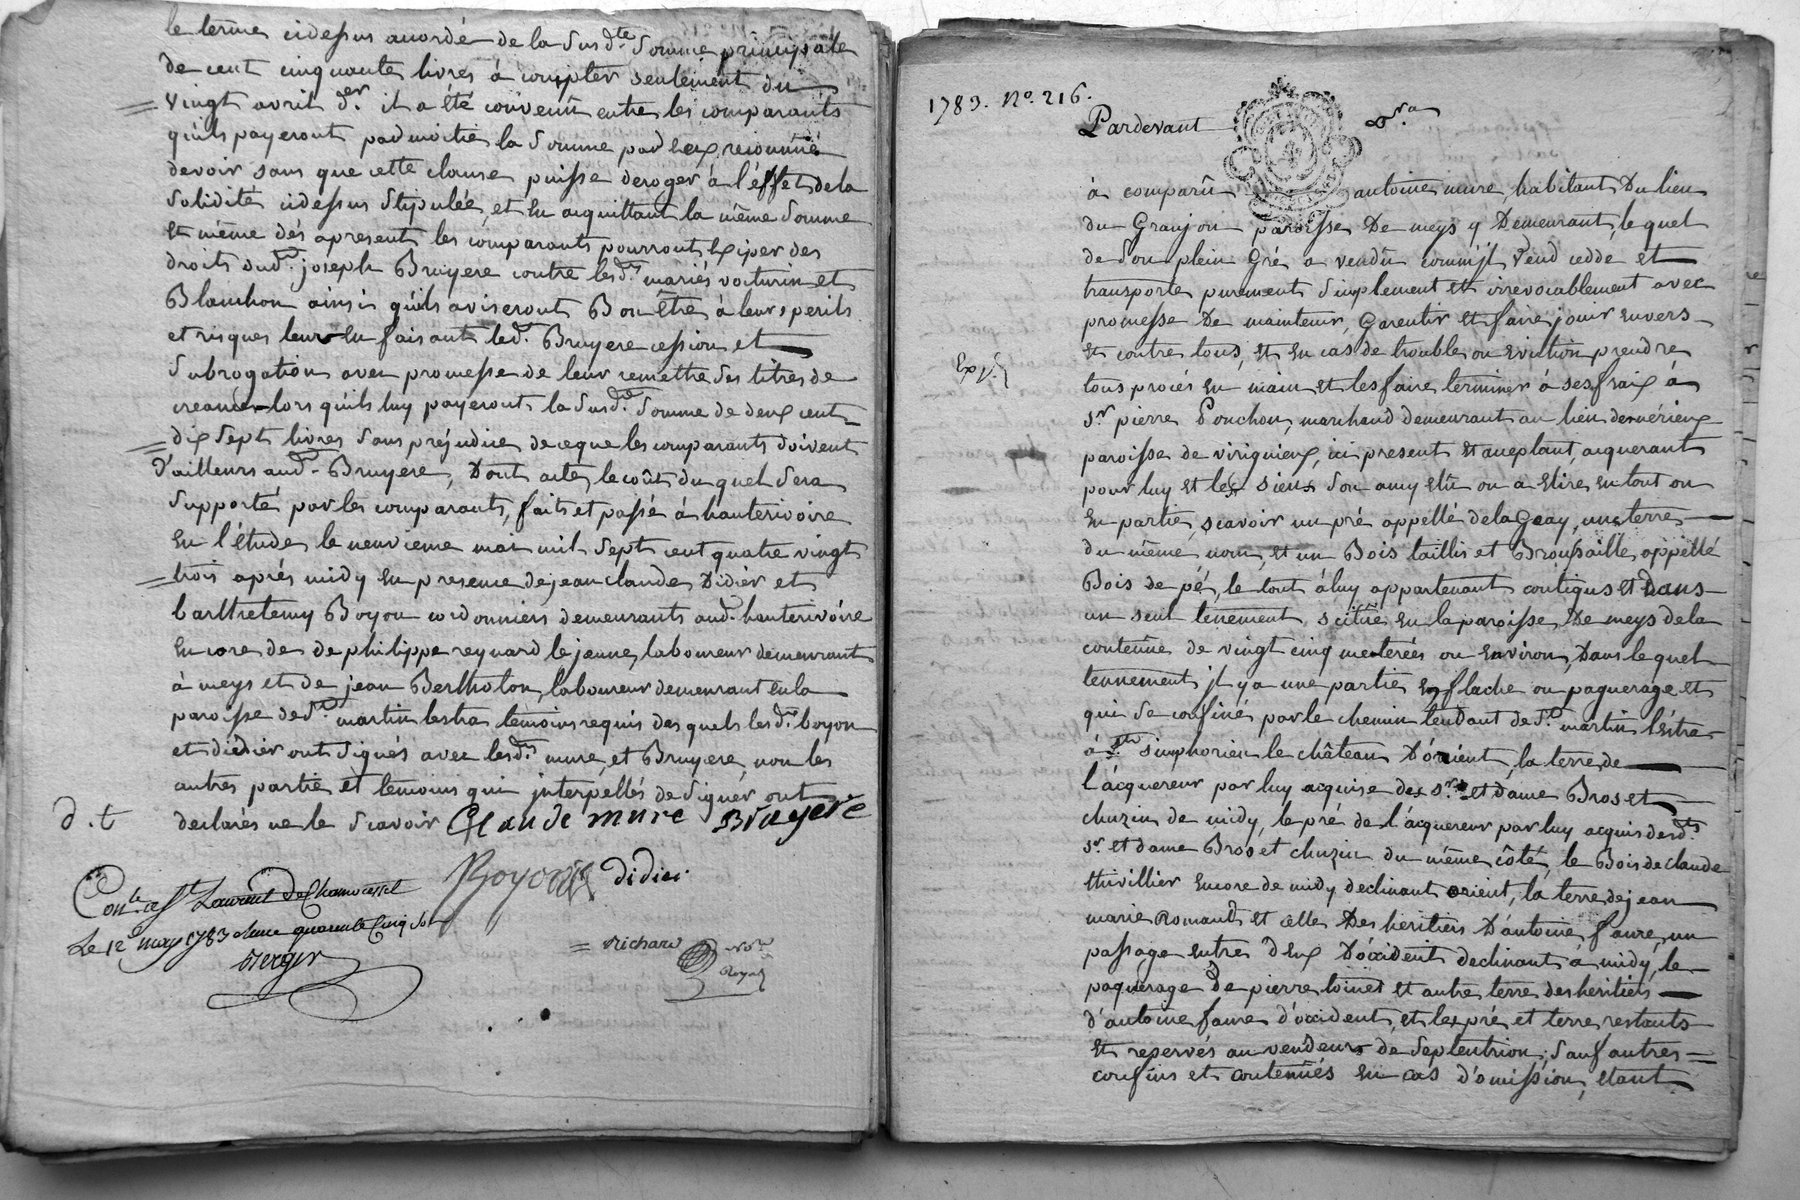 le terme cidessus accordé de la susd.te somme principale
de cent cinquante livres à compter seulement du
vingt avril d.er il a été convenu entre les comparants
qu'ils payeront par moitié la somme par eux reconnüe
devoir sans que cette clause puisse deroger à l'effet de la
solidité cidessus stipulée, et en acquittant la même somme
et même dés apresent les comparants pourront exiper des
droits dud.t joseph Bruyere contre lesd.ts mariés voiturin et
Blanchon ainsi qu'ils aviseront Bon être à leurs perils
et risques leur en faisant led.t Bruyere cession et
subrogation avec promesse de leur remettre ses titres de
creance lors qu'ils luy payeront la susd.te somme de deux cent
dix sept livres sans préjudice de ce que les comparants doivent
d'ailleurs aud.t Bruyere, Dont acte, le coût du quel sera
supporté par les comparants, fait et passé à hauterivoire
en l'étude le neuvieme mai mil sept cent quatre vingt
trois aprés midy en presence de jean claude Didier et
barthelemy Boyon cordonniers demeurants aud.t hauterivoire
encore de de philippe reynard le jeune, laboureur demeurant
à meys et de jean Bertholon, laboureur demeurant en la
paroisse de s.t martin lestra temoins requis des quels lesd.ts boyon
et didier ont signés avec lesd.ts mure, et Bruyere, non les
autres partie et temoins qui interpellés de signer ont
d.t declarés ne le scavoir Claude mure Bruyere
Boyon didier
Con.lé a s.t Laurent De Chamousset
Le 12 may 1783 quarante Cinq sols
Berger
= richard no.re
Royal
1783. N.o 216.
Pardevant
à comparû antoine mure, habitant Du lieu
du Granjon paroisse De meys y Demeurant, le quel
de son plein Gré a vendu comm'jl vend cedde et
transporte purement simplement et irrevocablement avec
promesse De maintenir, Garentir et faire jouir envers
et contre tous, et en cas de trouble ou eviction prendre
Exp.é
tous procés en main et les faire terminer à ses fraix à
s.r pierre Ponchon, marchand demeurant au lieu de
paroisse de virigneux, ici present et acceptant, acquerant
pour luy et les siens son amy elû ou a elire en tout ou
en partie, scavoir un pré appellé de la Goay, une terre
du même nom, et un Bois taillis et Broussaille, appellé
Bois de pé, le tout à luy appartenant contigus et dans
un seul tenement, scitué en la paroisse De meys de la
contenue de vingt cinq meterées ou environ, Dans le quel
tennement jl y a une partie en flache ou paquerage et
qui se confine par le chemin tendant de s.t martin l'éstra
à s.t simphorien le château D'orient, la terre de
l'acquereur par luy acquise des s.r et dame Bros et
chuzin de midy, le pré de l'acquereur par luy acquis desd.ts
s.r et dame Bros et chuzin du même côté, le Bois de claude
thivillier encore de midy declinant orient, la terre de jean
marie Romand et celle Des heritiers D'antoine faure, un
passage entre deux D'occident declinant à midy, le
paquerage De pierre toinet et autre terre des heritiers
d'antoine faure d'occident, et les pré et terre restants
et reservés au vendeur de septentrion, sauf autres
confins et contenües en cas d'omission, etant